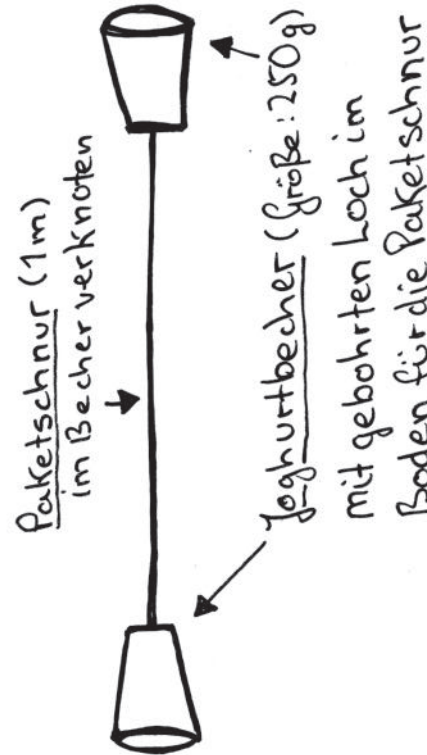 Paketschnur (1m)
im Becher verknoten
Joghurtbecher (Größe: 250g)
mit gebohrten Loch im
Boden für die Paketschnur